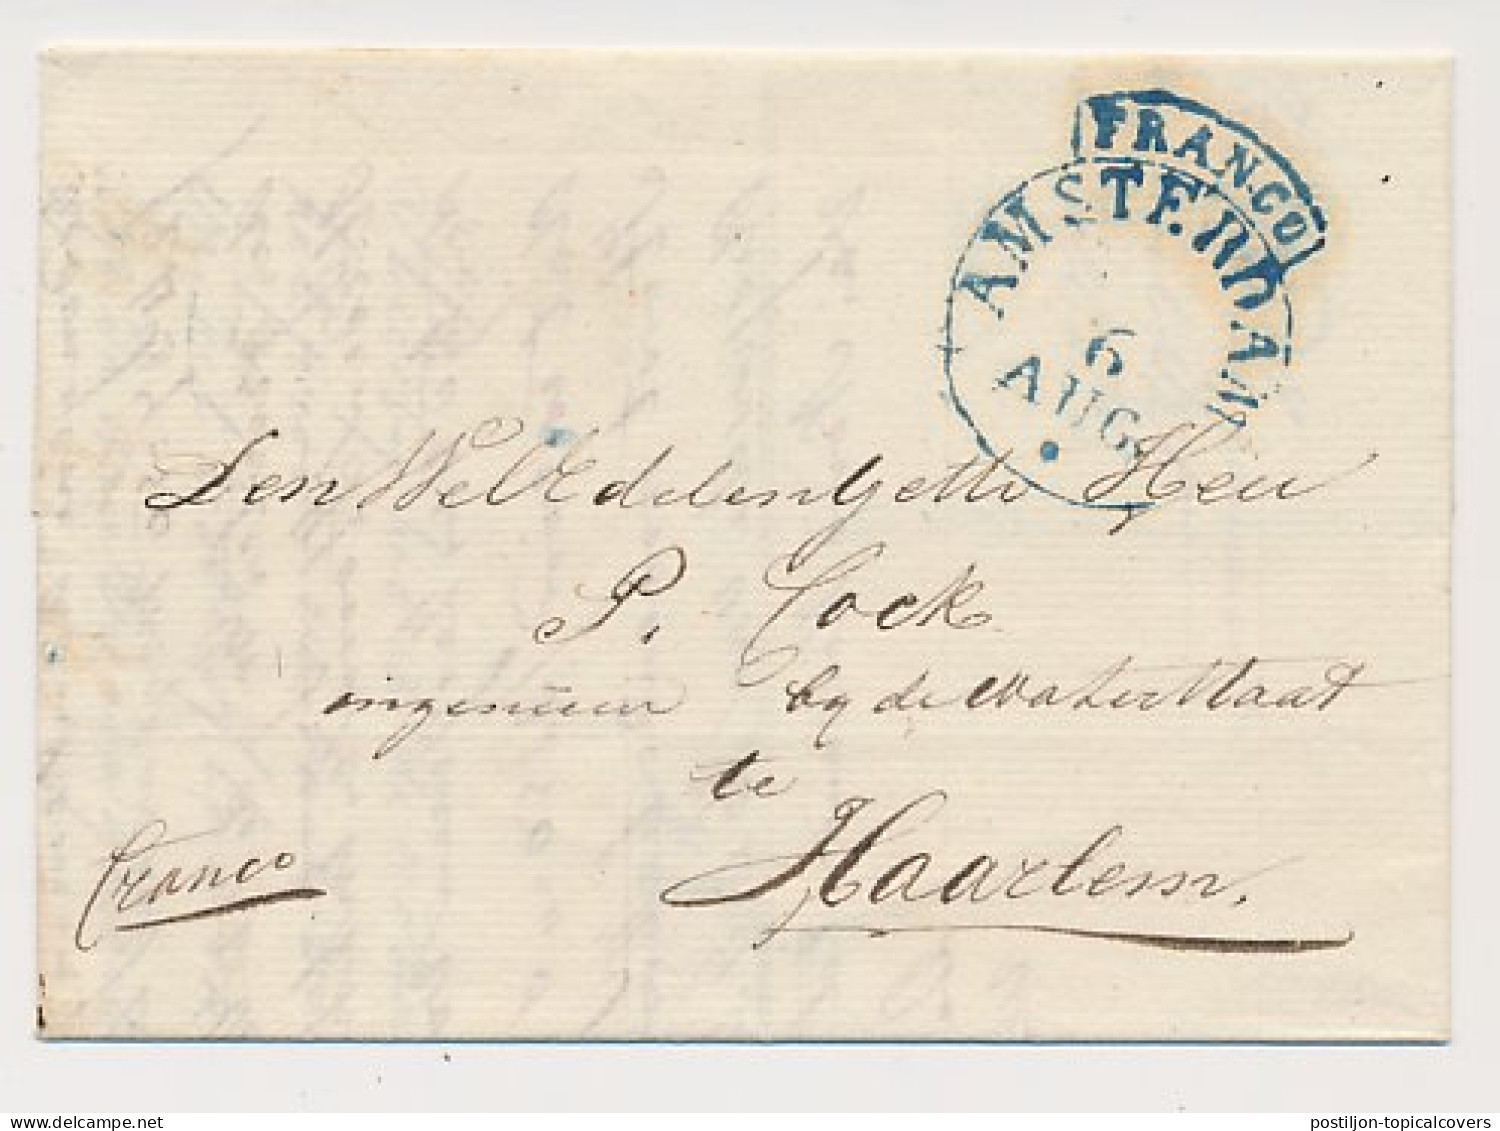 FRANCO
AMSTERDAM
6
AUG.
Den WelEdelengestr Heer
P. Cock
ingenieur by de waterstaat
te
Haarlem.
franco
postiljon-topicalcovers